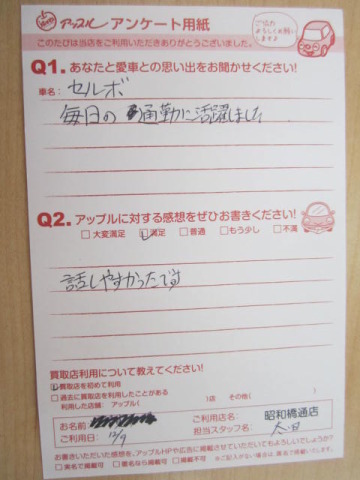 アップル アンケート用紙
このたびは当店をご利用いただきありがとうございました。
ご協力よろしくお願いしますよ
Q1. あなたと愛車との思い出をお聞かせください!
車名: セルボ
毎日の通勤に活躍しました
Q2. アップルに対する感想をぜひお書きください!
□大変満足 □満足 □普通 □もう少し □不満
話しやすかったです
買取店利用について教えてください!
□買取店を初めて利用
□過去に買取店を利用したことがある
利用した店舗 アップル( )店 その他( )
お名前
ご利用店名: 昭和橋通店
ご利用日: 12/7
担当スタッフ名:
お書きいただいた感想を、アップルHPや広告に掲載させていただいてもよろしいでしょうか?
□実名で掲載可 □匿名なら掲載可 □掲載不可 ※ご記入がない場合は匿名で掲載いたします。